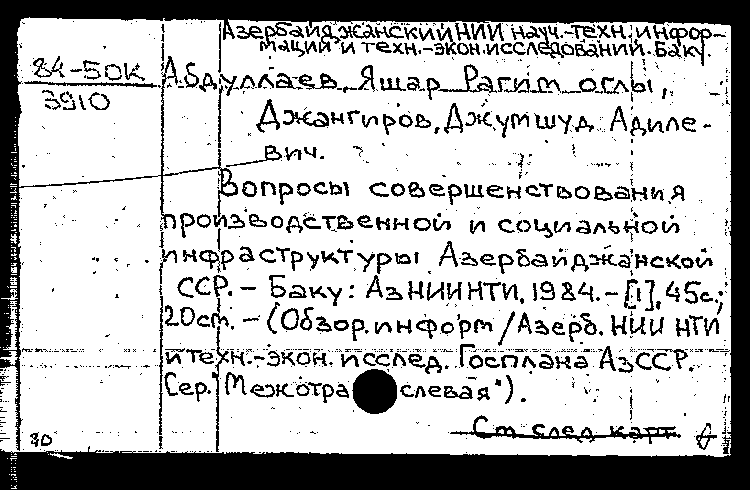 Азербайджанский НИИ науч.-техн. инфор-
мации и техн.-экон. исследований. Баку.
84-50К
3910
Абдуллаев, Яшар Рагим оглы,
Джангиров, Джумшуд Адиле-
вич.
Вопросы совершенствования
производственной и социальной
инфраструктуры Азербайджанской
ССР. – Баку: АзНИИНТИ, 1984. – [1], 45с.;
20см. – (Обзор. информ / Азерб. НИИ НТИ
и техн.-экон. исслед. Госплана АзССР.
Сер. "Межотраслевая").
См след карт.
80